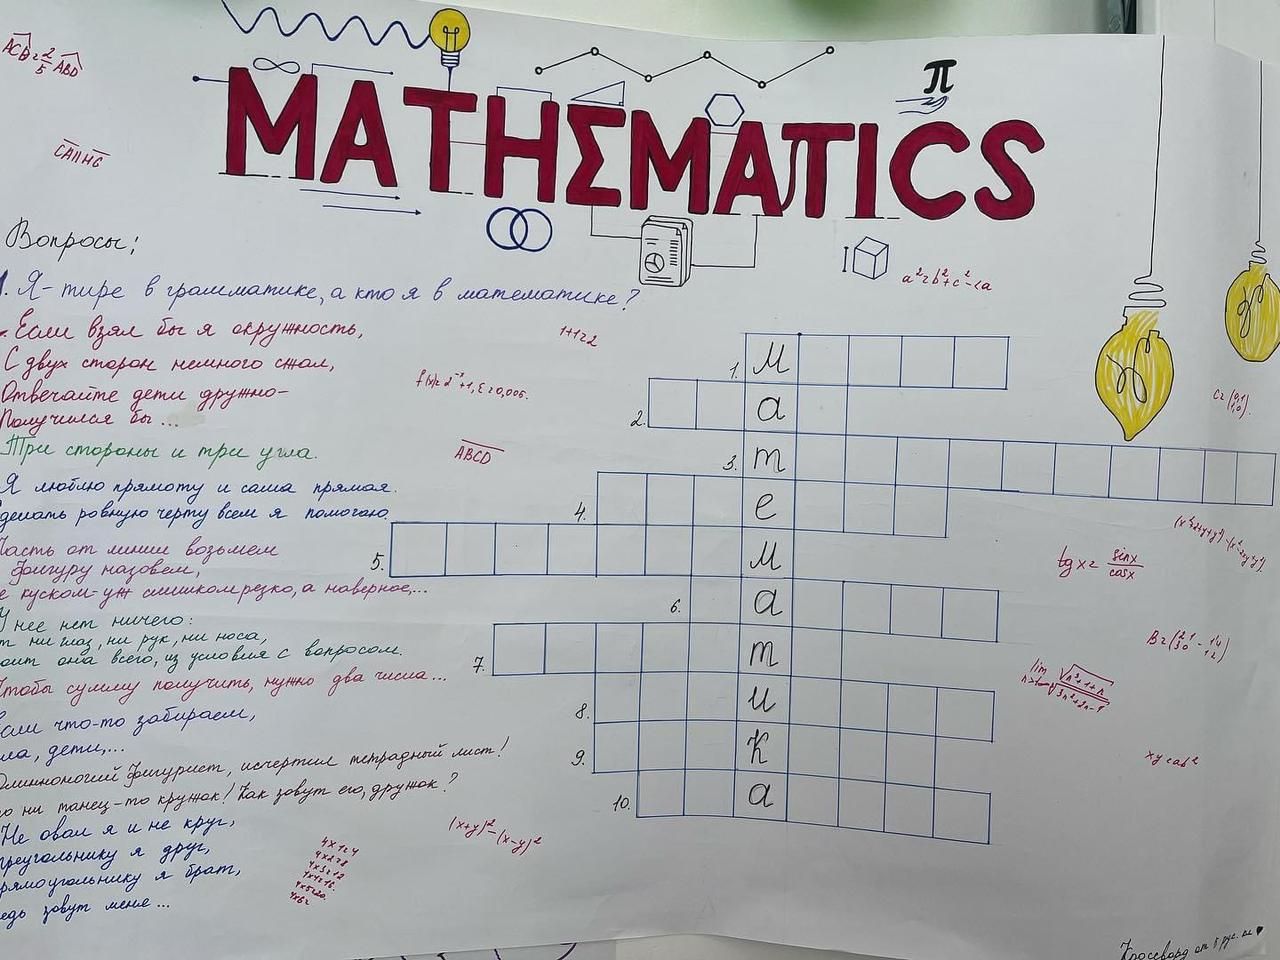 MATHΣMAπICS
π
Вопросы:
1. Я- тире в грамматике, а кто я в математике?
Если взял бы я окружность,
С двух сторон немного сжал,
Отвечайте дети дружно-
Получился бы...
Три стороны и три угла.
Я люблю прямоту и сама прямая.
сделать ровную черту всем я помогаю.
Часть от линии возьмем
фигуру назовем,
не куском-уж слишком резко, а наверное,...
У нее нет ничего:
нет ни глаз, ни рук, ни носа,
состоит она всего, из условия с вопросом.
Чтобы сумму получить, нужно два числа...
Если что-то забираем,
дети,...
Одноногий фигурист, исчертил тетрадный лист!
ни танец-то кружок! Как зовут его, дружок?
Не овал я и не круг,
треугольнику я друг,
прямоугольнику я брат,
ведь зовут меня...
1+1=2
ABCD
1. м
2. а
3. т
4. е
5. м
6. а
7. т
8. и
9. к
10. а
tgx = sinx/cosx
(x+y)²-(x-y)²
4x1=4
4x2=8
4x3=12
4x4=16
4x5=20
4x6=
Кроссворд от